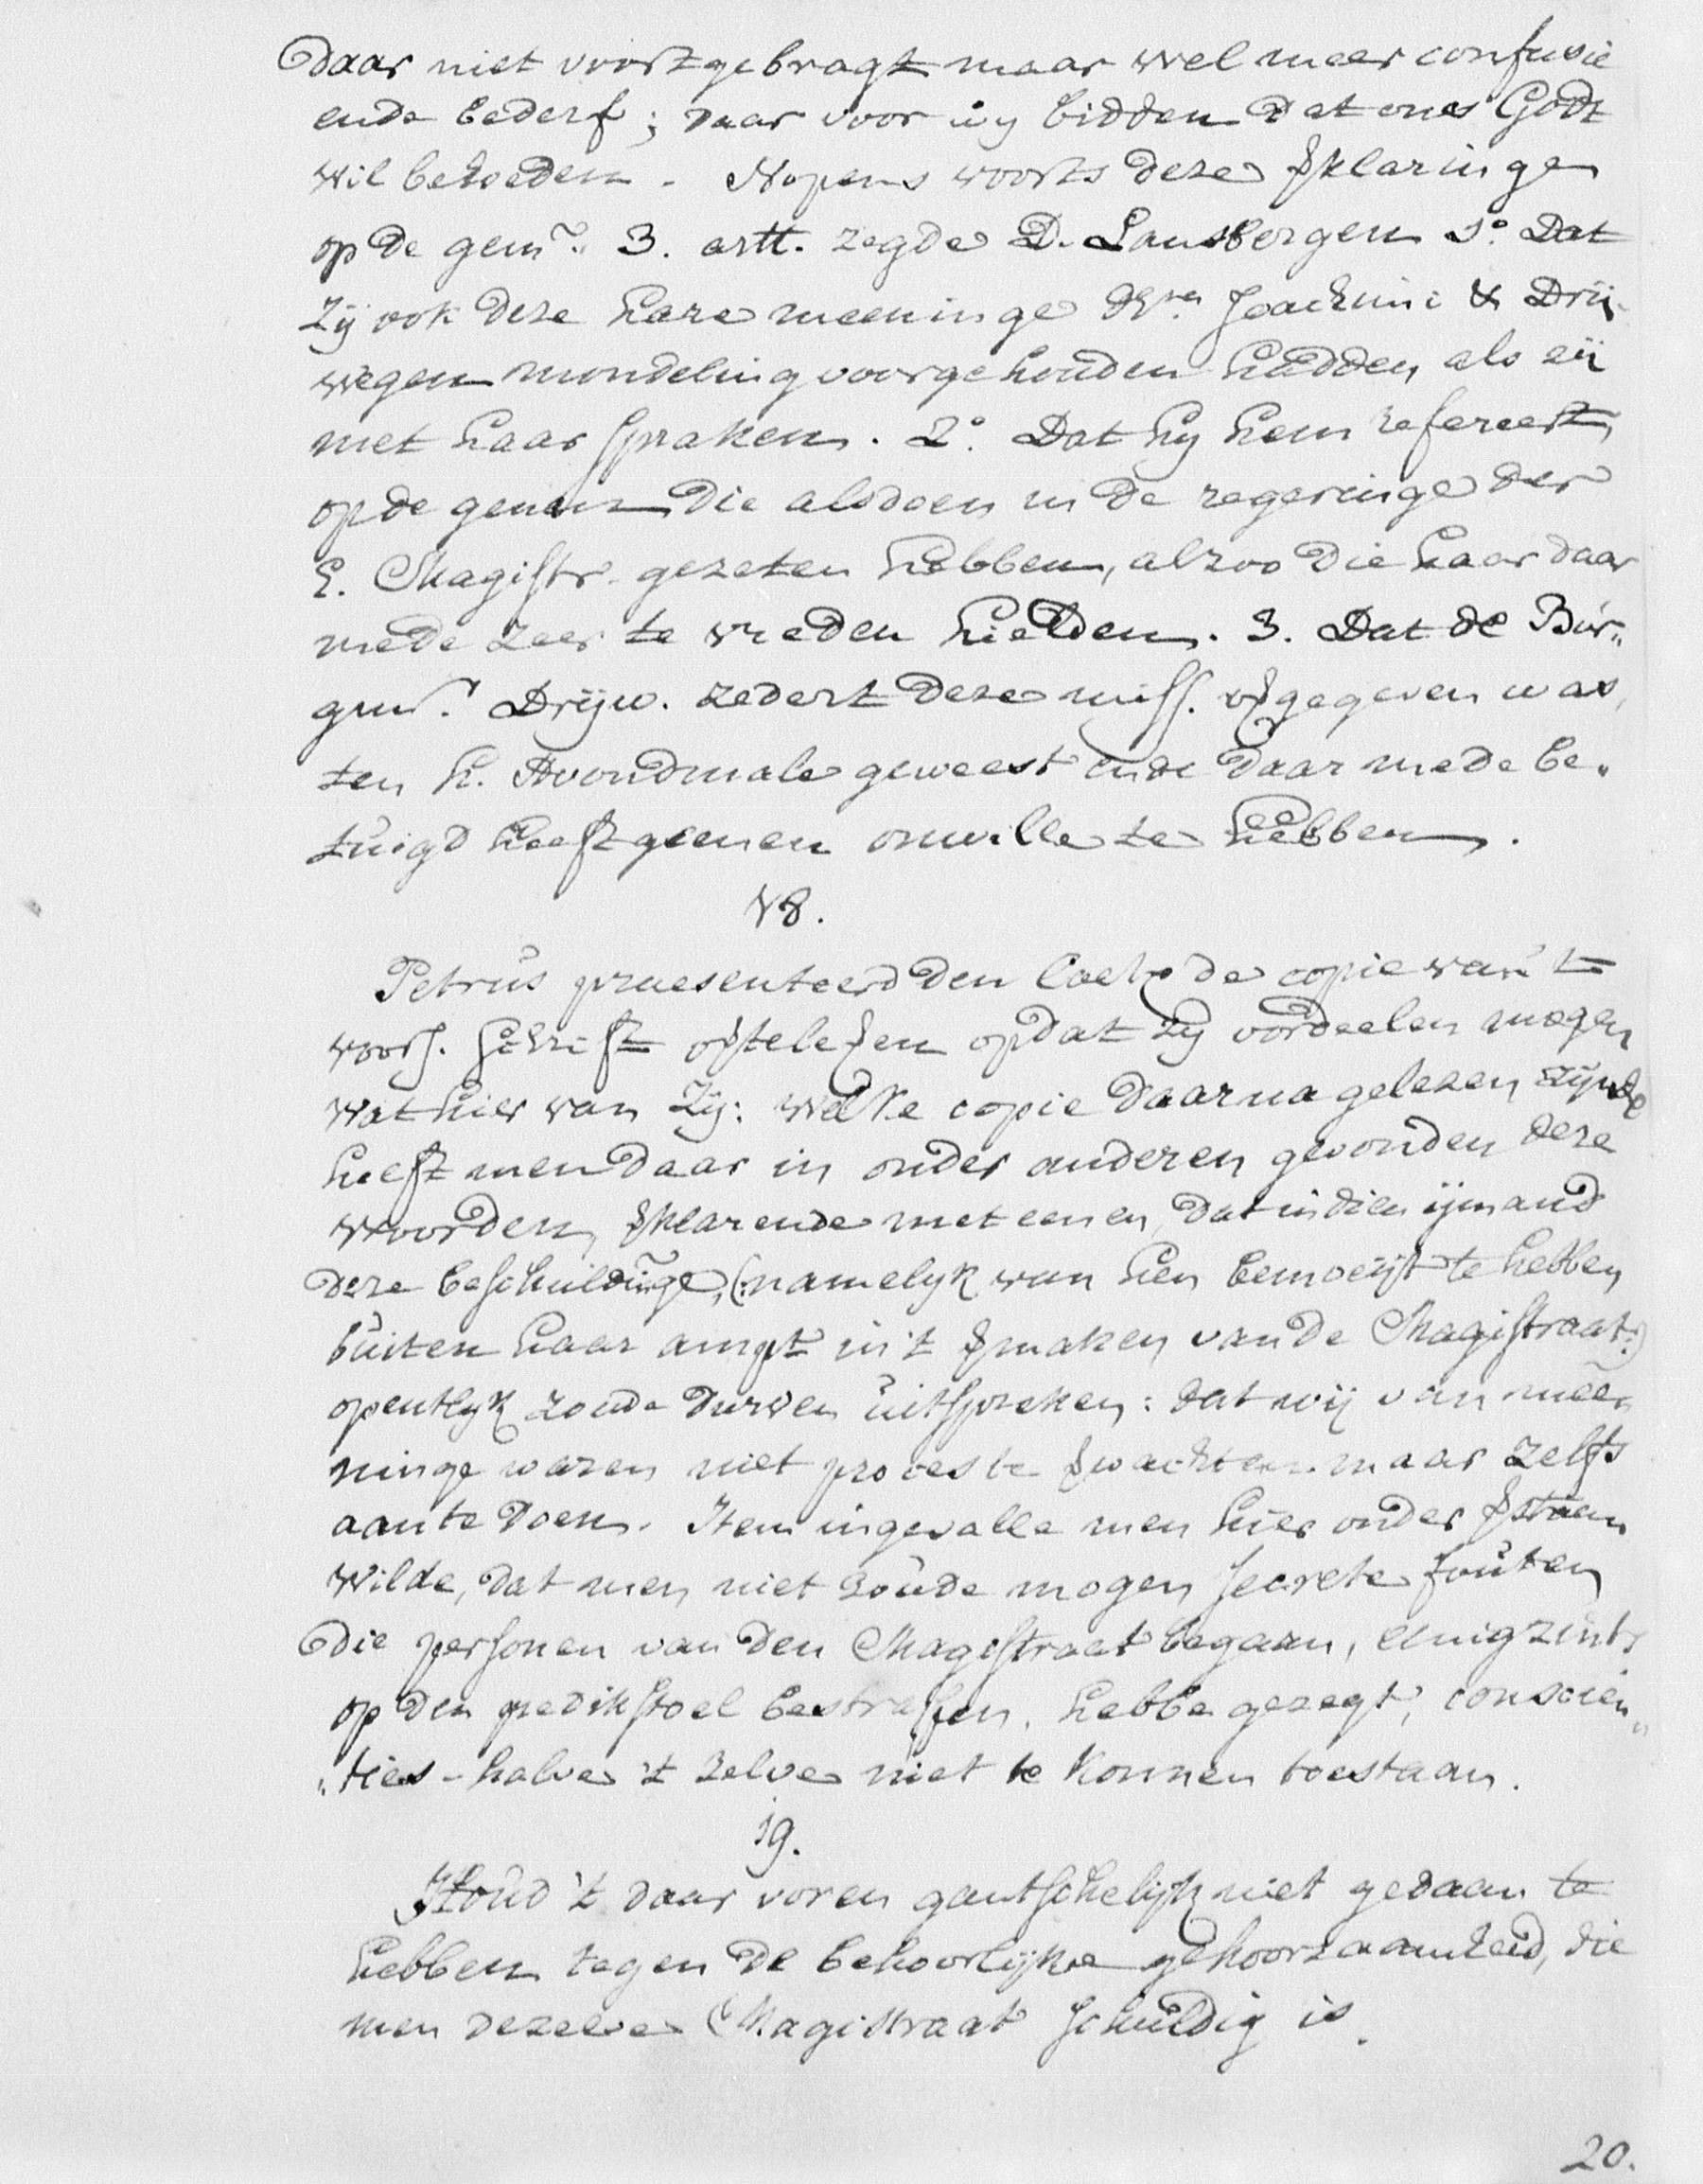 daar niet voortgebragt maar wel meer confusie
ende bederf; daar voor wy bidden dat ons Godt
wil behoeden. Nopens voorts deze vklaringe
op de gem.~ 3. artt. zegde D. Lansbergen 1.° Dat
Zij ook deze hare meeninge Joachimi & Drij
wegen mondeling voorgehouden hadden, als zij
met haar spraken. 2.° Dat hy hem refereert
op de genen die alsdoen in de regeringe der
E. Magistr. gezeten hebben, alzoo die haar daar
mede zeer te vreden hielden. 3. Dat de Bur„
gmr. Drijw. zedert deze miss. vgegeven was,
ten h. Avondmale geweest ende daar mede be„
tuigd heeft geenen onwille te hebben.
18.
Petrus praesenteerd den de copie van 't
voors. schrift opdat zy oordeelen mogen
wat hier van Zij: welke copie daarna gelezen zijnde
heeft men daar in onder anderen gevonden deze
woorden, vklarende met eenen, dat indien ijmand
deze beschuldinge, (:namelyk van hen bemoeijt te hebben
buiten haar ampt in 't vmaken van de Magistraat:)
opentlyk zoude durven uitspreken: dat wij van mee„
ninge waren niet proces te vwachten maar zelfs
aan te doen. Item ingevalle men hier onder vstaen
wilde, dat men niet zoude mogen secrete fouten
die personen van den Magistraet begaan, eenigzints
op den predikstoel bestraffen, hebbe gezegt, conscien„
„ties-halve 't zelve niet te konnen toestaan.
19.
Houd 't daar voren gantschelijk niet gedaan te
hebben tegen de behoorlijke gehoorzaamheid, die
men dezelve Magistraat schuldig is.
20.